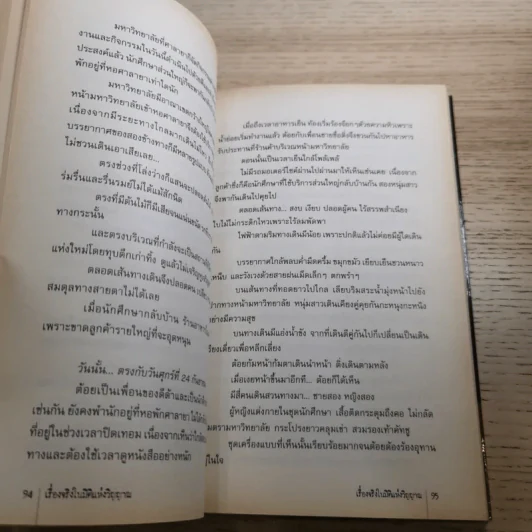 มหาวิทยาลัยที่ศาลายาก็
งานและกิจกรรมในวันนี้ดำเนินไป
ประสงค์แล้ว นักศึกษาส่วนใหญ่ก็
พักอยู่ที่หอศาลายาเท่าใดนัก
มหาวิทยาลัยมีอาณาเขตกว้าง
หน้ามหาวิทยาลัยเข้าหอศาลายา
เนื่องจากมีระยะทางไกลมากเดิน
บรรยากาศของสองข้างทางก็มีหลาย
ไม่ชวนเดินเอาเสียเลย...
ตรงช่วงที่โล่งว่างก็แสนจะเปล่า
ร่มรื่นและรื่นรมย์ไม่ได้แม้สักนิด
ตรงที่มีต้นไม้ก็มีเสียจนแน่นขนัด
ทางกระนั้น
และตรงบริเวณที่กำลังจะเป็น
แห่งใหม่โดยทุบตึกเก่าทิ้ง ดูแล้วไม่เจริญหู
ตลอดเส้นทางเดินจึงปลอดคน
สมดุลทางสายตาไม่ได้เลย
เมื่อนักศึกษากลับบ้าน ร้านอาหาร
เพราะขาดลูกค้ารายใหญ่ที่จะอุดหนุน
วันนั้น... ตรงกับวันศุกร์ที่ 24 กันยายน
ต้อยเป็นเพื่อนของดีด้าและเป็น
เช่นกัน ยังคงพำนักอยู่ที่หอพักศาลายา ไม่ได้
ที่อยู่ในช่วงเวลาปิดเทอม เนื่องจาก
ทางและต้องใช้เวลาดูหนังสืออย่างหนัก
94 เรื่องจริงในมิติแห่งวิญญาณ
เมื่อถึงเวลาอาหารเย็น ท้องเริ่มร้องจ๊อกๆด้วยความหิวเพราะ
น้ำย่อยเริ่มทำงานแล้ว ต้อยกับเพื่อนชายชื่อสิ่งจึงชวนกันไปหาอาหาร
รับประทานที่ร้านค้าบริเวณหน้ามหาวิทยาลัย
ตอนนั้นเป็นเวลาเย็นใกล้โพล้เพล้
ไม่มีรถมอเตอร์ไซค์ผ่านไปผ่านมาให้เห็นเช่นเคย เนื่องจาก
ลูกค้าซึ่งก็คือนักศึกษาที่ใช้บริการส่วนใหญ่กลับบ้านกัน สองหนุ่มสาว
จึงพากันเดินไปคุยไป
ตลอดเส้นทาง... สงบ เงียบ ปลอดผู้คน ไร้สรรพสำเนียง
ใบไม้ไม่กระดิกไหวเพราะไร้ลมพัดพา
ไฟฟ้าตามริมทางเดินมีน้อย เพราะปกติแล้วไม่ค่อยมีผู้ใดเดิน
บรรยากาศใกล้พลบค่ำมืดครึ้ม ขมุกขมัว เงียบเย็นชวนหนาว
เหน็บ และวังเวงด้วยสายฝนเม็ดเล็กๆ ตกพรำๆ
บนเส้นทางที่ทอดยาวไปไกล เลียบริมสระน้ำมุ่งหน้าไปยัง
ทางหน้ามหาวิทยาลัย หนุ่มสาวเดินเคียงคู่คุยกันกะหนุงกะหนิง
อย่างมีความสุข
บนทางเดินมีแอ่งน้ำขัง จากที่เดินคู่กันไปก็เปลี่ยนเป็นเดิน
เรียงเดี่ยวเพื่อหลีกเลี่ยง
ต้อยก้มหน้าก้มตาเดินนำหน้า สิ่งเดินตามหลัง
เมื่อเงยหน้าขึ้นมาอีกที... ต้อยก็ได้เห็น
มีสี่คนเดินสวนทางมา... ชายสอง หญิงสอง
ผู้หญิงแต่งกายในชุดนักศึกษา เสื้อติดกระดุมถึงคอ ไม่กลัด
ตรามหาวิทยาลัย กระโปรงยาวคลุมเข่า สวมรองเท้าคัทชู
ชุดเครื่องแบบที่เห็นนั้นเรียบร้อยมากจนต้อยต้องร้องอุทาน
อยู่ในใจ
เรื่องจริงในมิติแห่งวิญญาณ 95